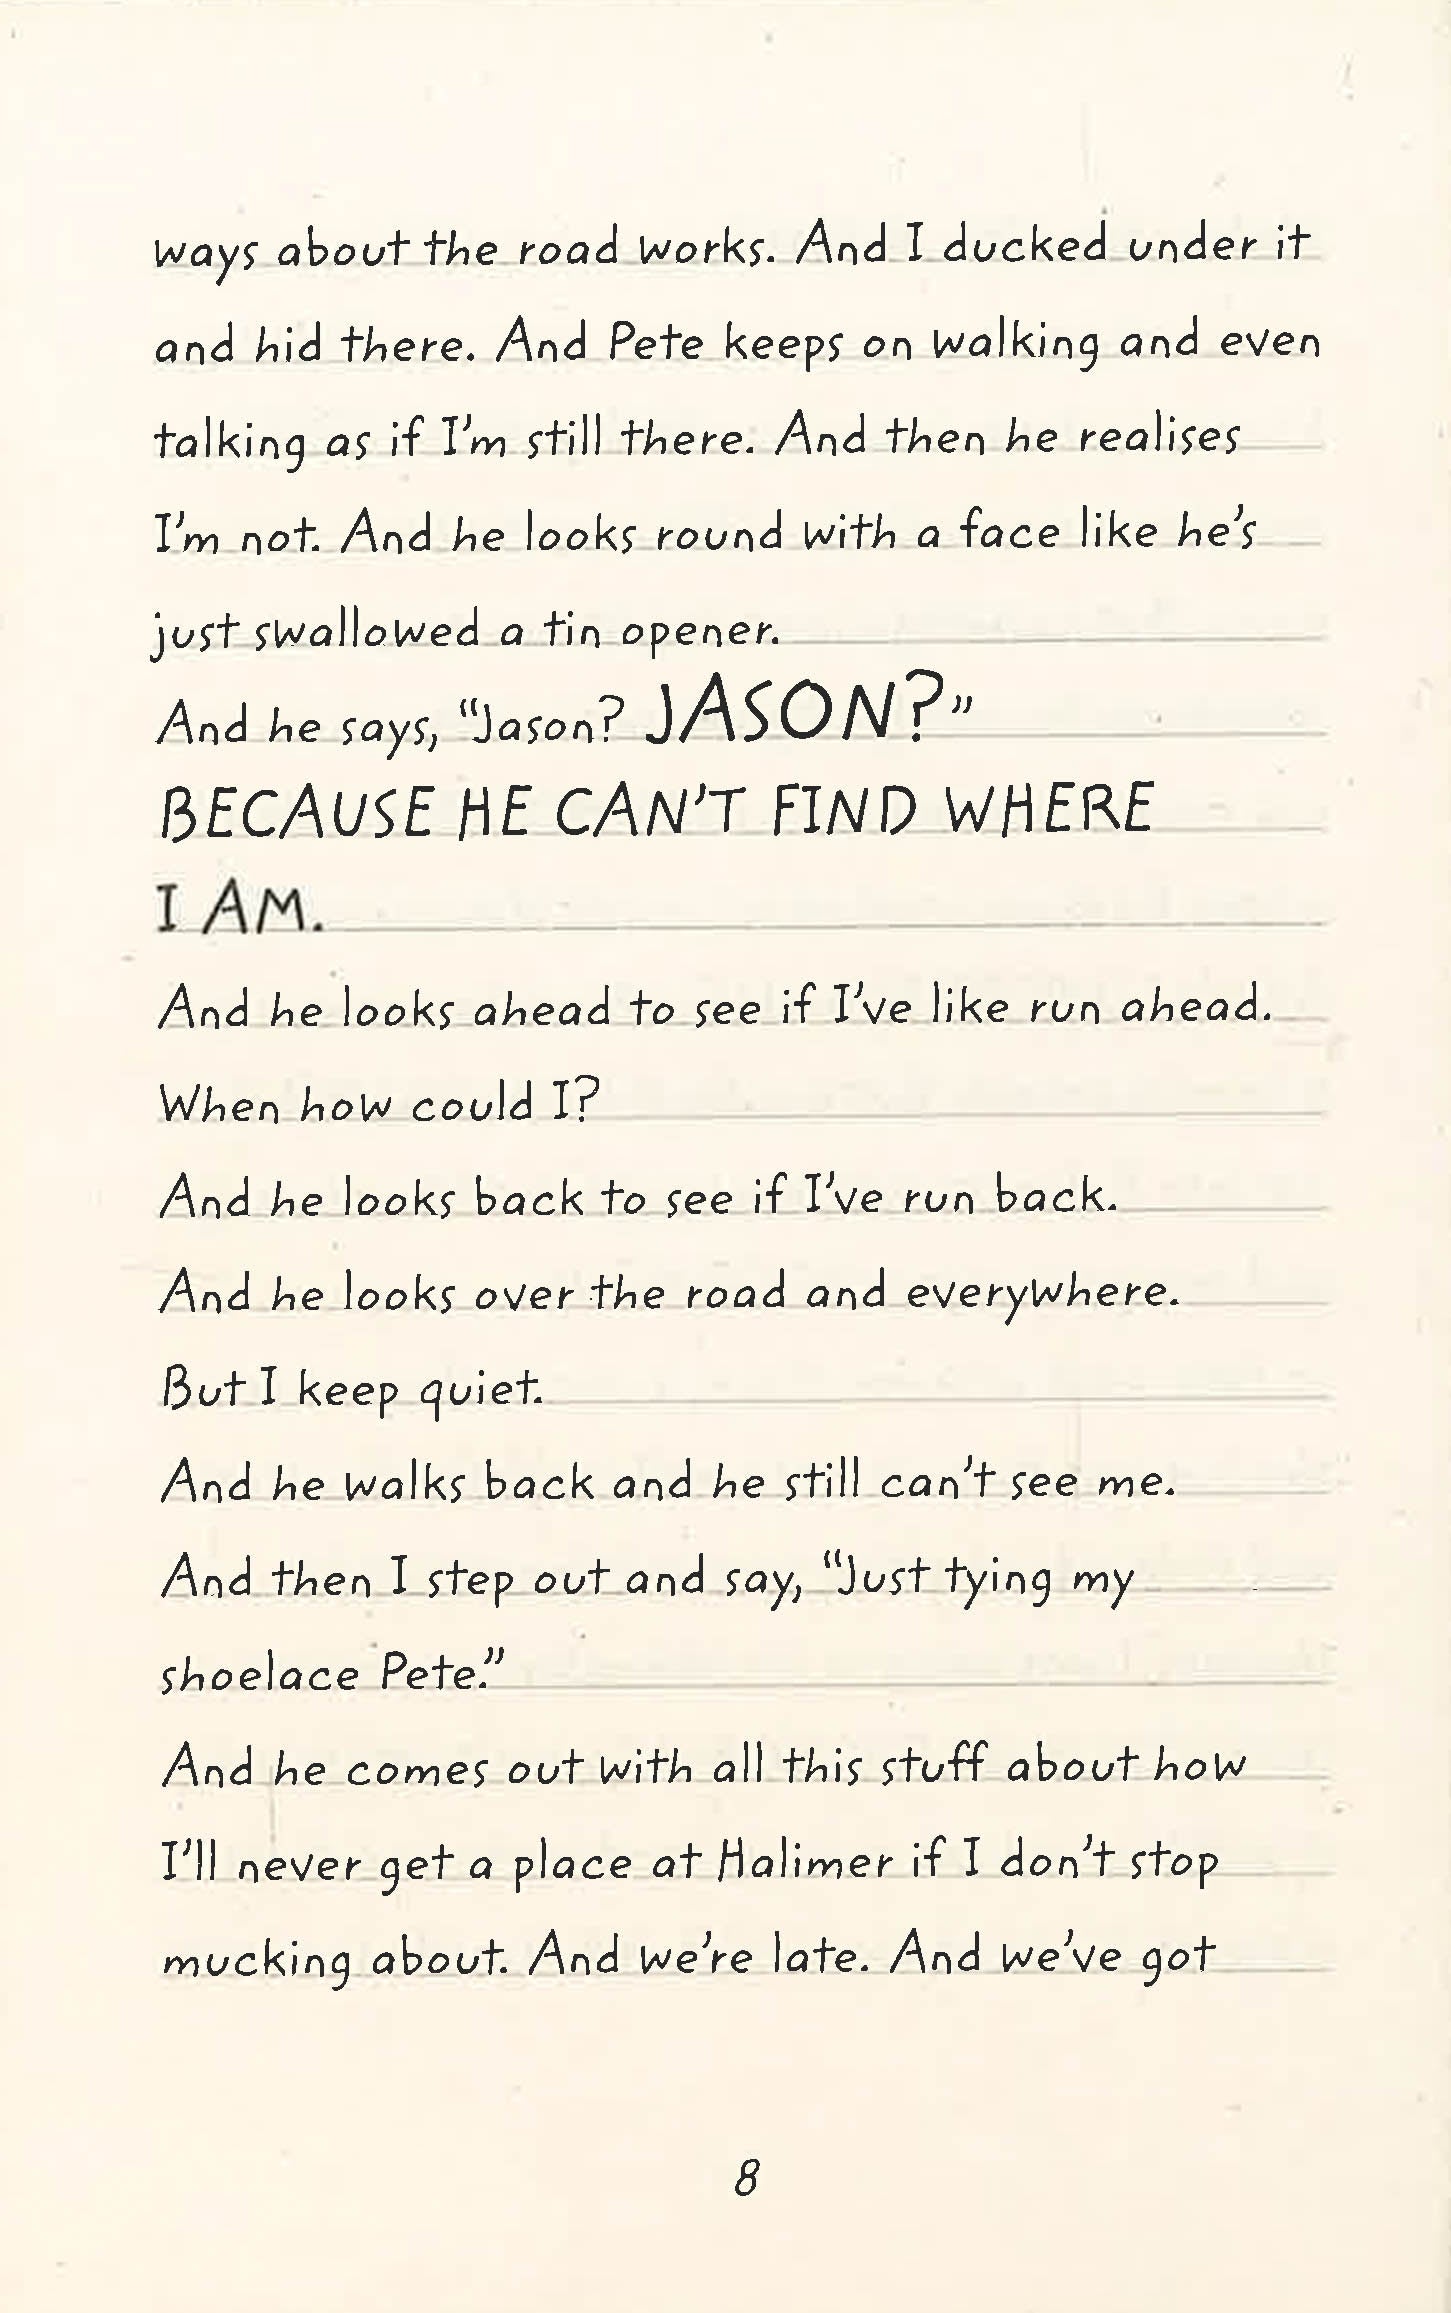 ways about the road works. And I ducked under it
and hid there. And Pete keeps on walking and even
talking as if I'm still there. And then he realises
I'm not. And he looks round with a face like he's
just swallowed a tin opener.
And he says, “Jason? JASON?”
BECAUSE HE CAN'T FIND WHERE
I AM.
And he looks ahead to see if I've like run ahead.
When how could I?
And he looks back to see if I've run back.
And he looks over the road and everywhere.
But I keep quiet.
And he walks back and he still can't see me.
And then I step out and say, “Just tying my
shoelace Pete.”
And he comes out with all this stuff about how
I'll never get a place at Halimer if I don't stop
mucking about. And we're late. And we've got
8